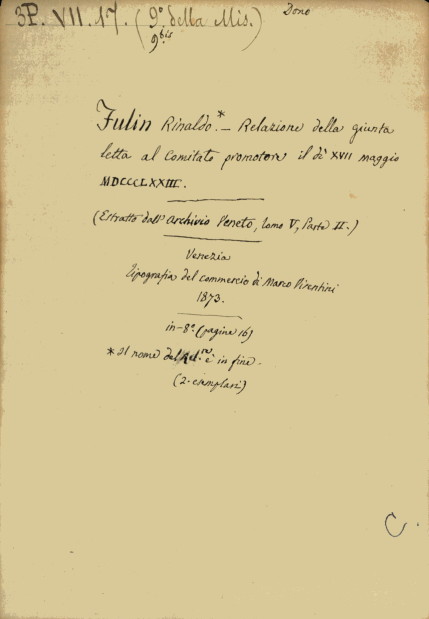 3P. VII. 17. (9.° della Mis.)
9.bis
Dono
Fulin Rinaldo.* – Relazione della giunta
letta al Comitato promotore il dì XVII maggio
MDCCCLXXIII.
(Estratto dall' Archivio Veneto, Tomo V, Parte II.)
Venezia
Tipografia del commercio di Marco Visentini
1873.
in-8.° (pagine 16)
* Il nome del Rel.re è in fine.
(2. esemplari)
C.